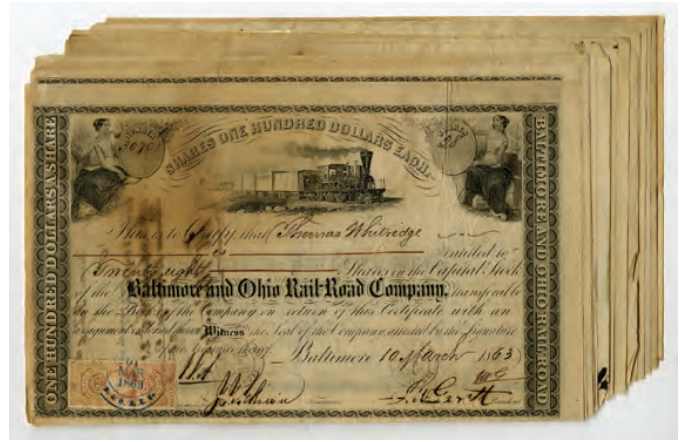 SHARES ONE HUNDRED DOLLARS EACH.
NUMBER
SHARES
ONE HUNDRED DOLLARS A SHARE
BALTIMORE AND OHIO RAIL-ROAD
This is to Certify that Thomas Whitridge
is entitled to
Twenty eight Shares in the Capital Stock
of the Baltimore and Ohio Rail-Road Company, transferable
on the Books of the Company on return of this Certificate with an
assignment endorsed thereon Witness the Seal of the Company, attested by the Signature
of the
Baltimore 10 March 1863
10
MAR
1863
President